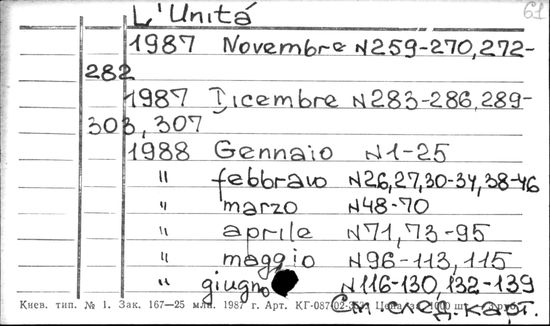 61
L'Unitá
1987 Novembre N259-270,272-
282
1987 Dicembre N283-286,289-
303,307
1988 Gennaio N1-25
" febbraio N26,27,30-34,38-46
" marzo N48-70
" aprile N71,73-95
" maggio N96-113,115
" giugno N116-130,132-139
См. след. карт.
Киев. тип. № 1. Зак. 167—25 млн. 1987 г. Арт. КГ-087-02 Цена за 1000 шт.